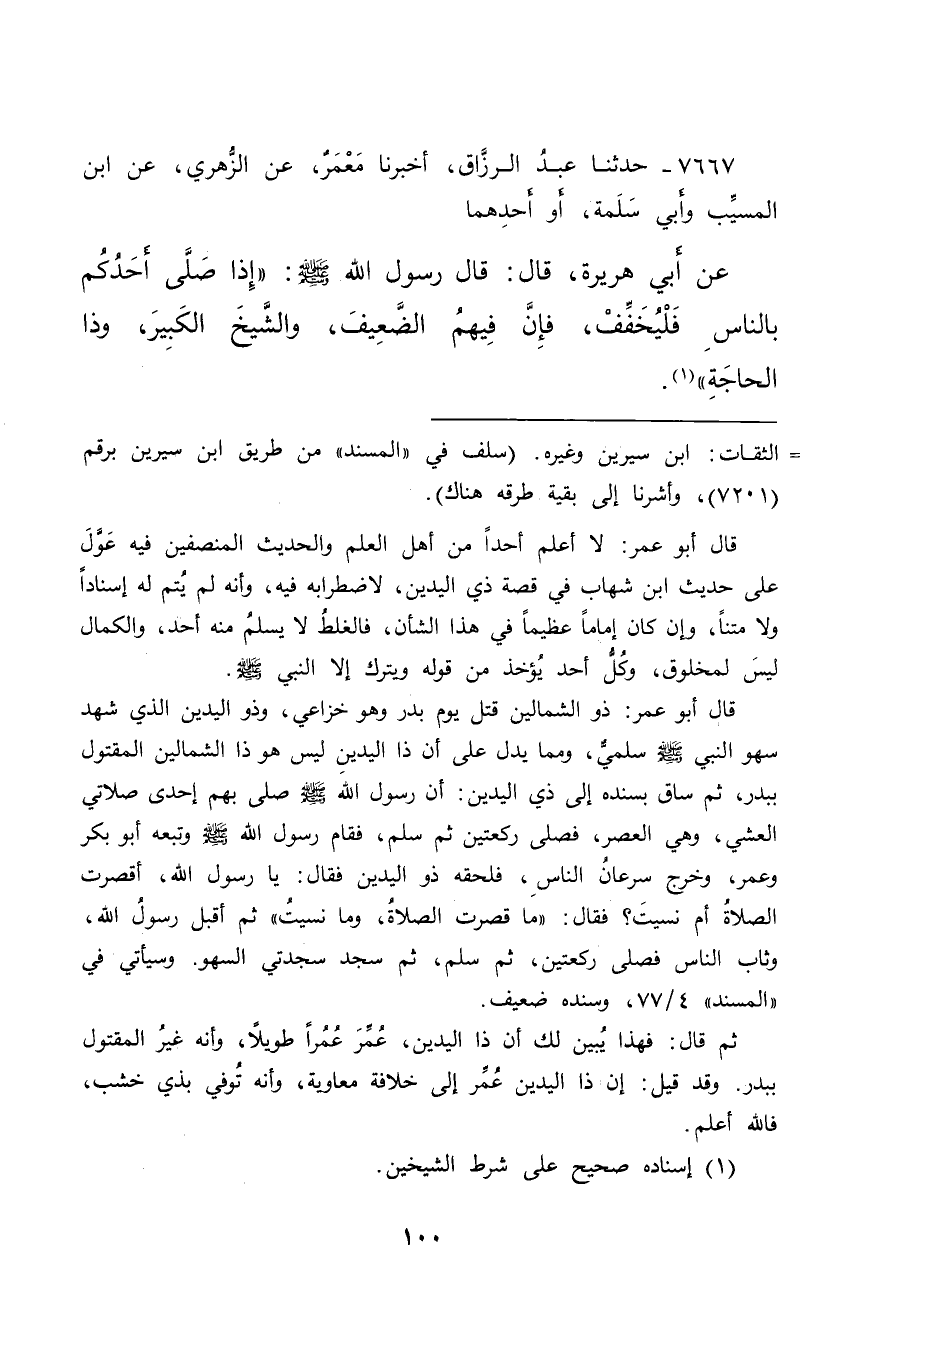 ٧٦٦٧ـ حدثنـا عبـدُ الـرزَّاق، أخبرنا مَعْمَرٌ، عن الزُّهري، عن ابن
المسيِّب وأَبي سَلَمة، أَو أَحدِهما
عن أَبي هريرة، قال: قال رسول الله ﷺ: «إِذا صَلَّى أَحَدُكُم
بالناسِ فَلْيُخَفِّفْ، فإِنَّ فِيهمُ الضَّعِيفَ، والشَّيخَ الكَبِيرَ، وذا
الحاجَةِ»(١).
= الثقـات: ابن سيرين وغيره. (سلف في «المسند» من طريق ابن سيرين برقم
(٧٢٠١)، وأشرنا إلى بقية طرقه هناك).
قال أبو عمر: لا أعلم أحداً من أهل العلم والحديث المنصفين فيه عَوَّلَ
على حديث ابن شهاب في قصة ذي اليدين، لاضطرابه فيه، وأنه لم يُتم له إسناداً
ولا متناً، وإن كان إماماً عظيماً في هذا الشأن، فالغلطُ لا يسلمُ منه أحد، والكمال
ليسَ لمخلوق، وكُلُّ أحد يُؤخذ من قوله ويترك إلا النبي ﷺ.
قال أبو عمر: ذو الشمالين قتل يوم بدر وهو خزاعي، وذو اليدين الذي شهد
سهو النبي ﷺ سلميٌّ، ومما يدل على أن ذا اليدين ليس هو ذا الشمالين المقتول
ببدر، ثم ساق بسنده إلى ذي اليدين: أن رسول الله ﷺ صلى بهم إحدى صلاتي
العشي، وهي العصر، فصلى ركعتين ثم سلم، فقام رسول الله ﷺ وتبعه أبو بكر
وعمر، وخرج سرعانُ الناسِ، فلحقه ذو اليدين فقال: يا رسول الله، أقصرت
الصلاةُ أم نسيتَ؟ فقال: «ما قصرت الصلاةُ، وما نسيتُ» ثم أقبل رسولُ الله،
وثاب الناس فصلى ركعتين، ثم سلم، ثم سجد سجدتي السهو. وسيأتي في
«المسند» ٧٧/٤، وسنده ضعيف.
ثم قال: فهذا يُبين لك أن ذا اليدين، عُمِّرَ عُمُراً طويلاً، وأنه غيرُ المقتول
ببدر. وقد قيل: إن ذا اليدين عُمِّر إلى خلافة معاوية، وأنه تُوفي بذي خشب،
فالله أعلم.
(١) إسناده صحيح على شرط الشيخين.
١٠٠